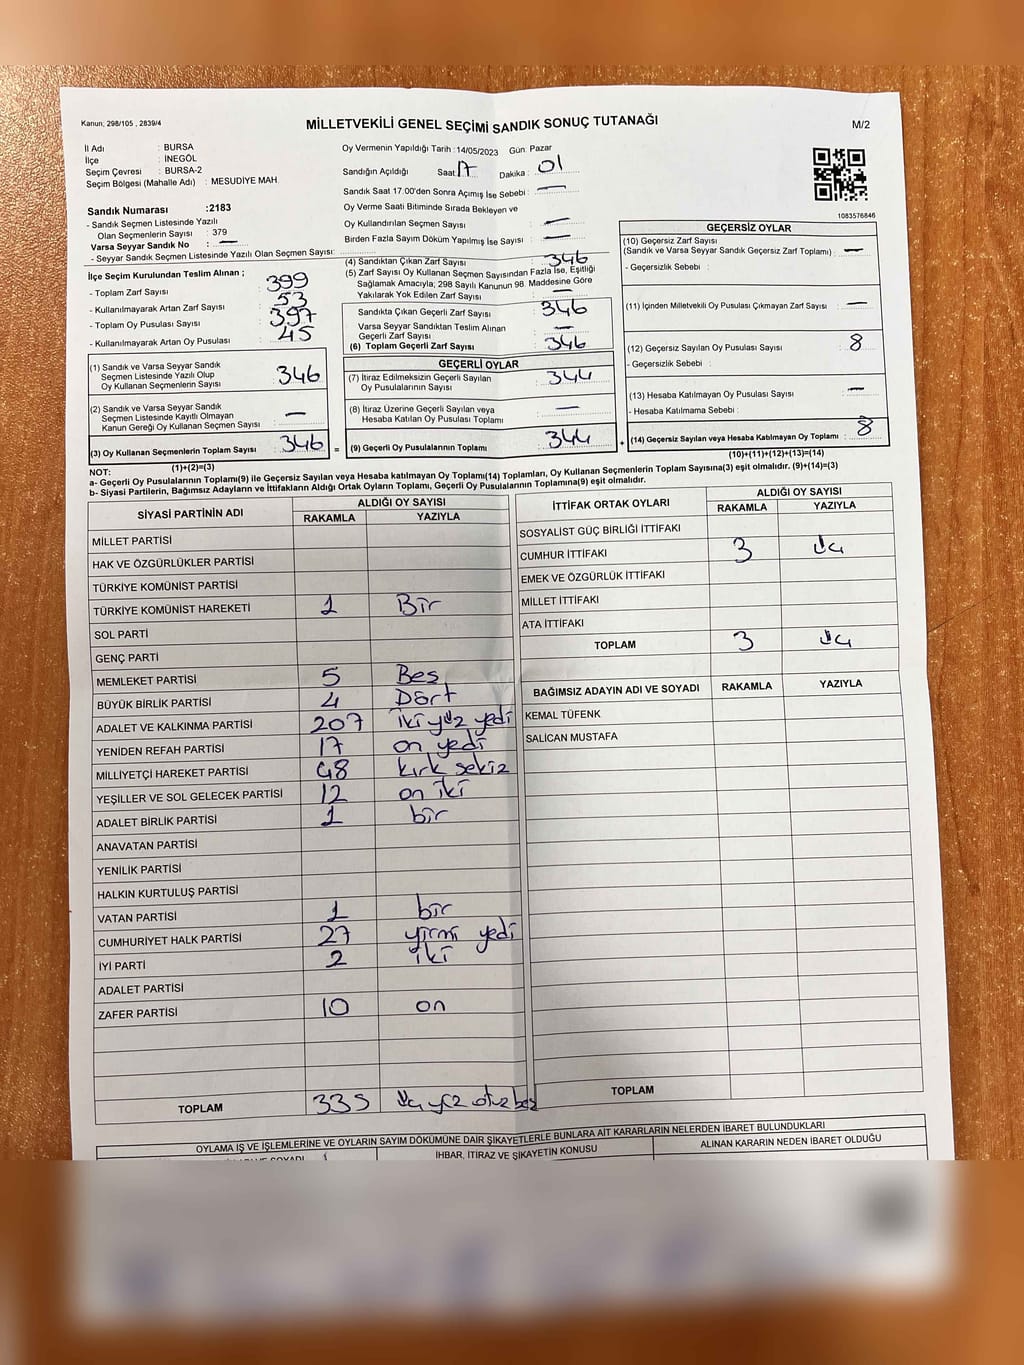 Kanun; 298/105 , 2839/4
MİLLETVEKİLİ GENEL SEÇİMİ SANDIK SONUÇ TUTANAĞI
M/2
İl Adı : BURSA
İlçe : İNEGÖL
Seçim Çevresi : BURSA-2
Seçim Bölgesi (Mahalle Adı) : MESUDİYE MAH.
Oy Vermenin Yapıldığı Tarih : 14/05/2023 Gün: Pazar
Sandığın Açıldığı Saat: 17 Dakika : 01
Sandık Saat 17:00'den Sonra Açılmış İse Sebebi : —
Oy Verme Saati Bitiminde Sırada Bekleyen ve
Oy Kullandırılan Seçmen Sayısı : —
Birden Fazla Sayım Döküm Yapılmış İse Sayısı : —
1083576846
Sandık Numarası :2183
- Sandık Seçmen Listesinde Yazılı
Olan Seçmenlerin Sayısı : 379
Varsa Seyyar Sandık No : —
- Seyyar Sandık Seçmen Listesinde Yazılı Olan Seçmen Sayısı:
İlçe Seçim Kurulundan Teslim Alınan ;
- Toplam Zarf Sayısı : 399
- Kullanılmayarak Artan Zarf Sayısı : 53
- Toplam Oy Pusulası Sayısı : 397
- Kullanılmayarak Artan Oy Pusulası : 45
(1) Sandık ve Varsa Seyyar Sandık
Seçmen Listesinde Yazılı Olup
Oy Kullanan Seçmenlerin Sayısı : 346
(2) Sandık ve Varsa Seyyar Sandık
Seçmen Listesinde Kayıtlı Olmayan
Kanun Gereği Oy Kullanan Seçmen Sayısı : —
(3) Oy Kullanan Seçmenlerin Toplam Sayısı : 346
(1)+(2)=(3)
(4) Sandıktan Çıkan Zarf Sayısı : 346
(5) Zarf Sayısı Oy Kullanan Seçmen Sayısından Fazla İse, Eşitliği
Sağlamak Amacıyla; 298 Sayılı Kanunun 98. Maddesine Göre
Yakılarak Yok Edilen Zarf Sayısı : —
Sandıkta Çıkan Geçerli Zarf Sayısı : 346
Varsa Seyyar Sandıktan Teslim Alınan
Geçerli Zarf Sayısı : —
(6) Toplam Geçerli Zarf Sayısı : 346
GEÇERLİ OYLAR
(7) İtiraz Edilmeksizin Geçerli Sayılan
Oy Pusulalarının Sayısı : 344
(8) İtiraz Üzerine Geçerli Sayılan veya
Hesaba Katılan Oy Pusulası Toplamı : —
= (9) Geçerli Oy Pusulalarının Toplamı : 344
GEÇERSİZ OYLAR
(10) Geçersiz Zarf Sayısı
(Sandık ve Varsa Seyyar Sandık Geçersiz Zarf Toplamı) : —
- Geçersizlik Sebebi :
(11) İçinden Milletvekili Oy Pusulası Çıkmayan Zarf Sayısı : —
(12) Geçersiz Sayılan Oy Pusulası Sayısı : 8
- Geçersizlik Sebebi :
(13) Hesaba Katılmayan Oy Pusulası Sayısı : —
- Hesaba Katılmama Sebebi :
+ (14) Geçersiz Sayılan veya Hesaba Katılmayan Oy Toplamı : 8
(10)+(11)+(12)+(13)=(14)
NOT:
a- Geçerli Oy Pusulalarının Toplamı(9) ile Geçersiz Sayılan veya Hesaba katılmayan Oy Toplamı(14) Toplamları, Oy Kullanan Seçmenlerin Toplam Sayısına(3) eşit olmalıdır. (9)+(14)=(3)
b- Siyasi Partilerin, Bağımsız Adayların ve İttifakların Aldığı Ortak Oyların Toplamı, Geçerli Oy Pusulalarının Toplamına(9) eşit olmalıdır.
SİYASİ PARTİNİN ADI ALDIĞI OY SAYISI
RAKAMLA YAZIYLA
MİLLET PARTİSİ
HAK VE ÖZGÜRLÜKLER PARTİSİ
TÜRKİYE KOMÜNİST PARTİSİ
TÜRKİYE KOMÜNİST HAREKETİ 1 Bir
SOL PARTİ
GENÇ PARTİ
MEMLEKET PARTİSİ 5 Beş
BÜYÜK BİRLİK PARTİSİ 4 Dört
ADALET VE KALKINMA PARTİSİ 207 iki yüz yedi
YENİDEN REFAH PARTİSİ 17 on yedi
MİLLİYETÇİ HAREKET PARTİSİ 48 kırk sekiz
YEŞİLLER VE SOL GELECEK PARTİSİ 12 on iki
ADALET BİRLİK PARTİSİ 1 bir
ANAVATAN PARTİSİ
YENİLİK PARTİSİ
HALKIN KURTULUŞ PARTİSİ
VATAN PARTİSİ 1 bir
CUMHURİYET HALK PARTİSİ 27 yirmi yedi
İYİ PARTİ 2 iki
ADALET PARTİSİ
ZAFER PARTİSİ 10 on
TOPLAM 335 üç yüz otuz beş
İTTİFAK ORTAK OYLARI ALDIĞI OY SAYISI
RAKAMLA YAZIYLA
SOSYALİST GÜÇ BİRLİĞİ İTTİFAKI
CUMHUR İTTİFAKI 3 üç
EMEK VE ÖZGÜRLÜK İTTİFAKI
MİLLET İTTİFAKI
ATA İTTİFAKI
TOPLAM 3 üç
BAĞIMSIZ ADAYIN ADI VE SOYADI RAKAMLA YAZIYLA
KEMAL TÜFENK
SALİCAN MUSTAFA
TOPLAM
OYLAMA İŞ VE İŞLEMLERİNE VE OYLARIN SAYIM DÖKÜMÜNE DAİR ŞİKAYETLERLE BUNLARA AİT KARARLARIN NELERDEN İBARET BULUNDUKLARI
İHBAR, İTİRAZ VE ŞİKAYETİN KONUSU
ALINAN KARARIN NEDEN İBARET OLDUĞU